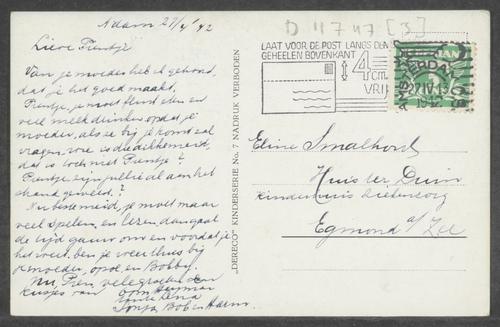 A'dam 27/4/'42
Lieve Fientje
Van je moeder heb ik gehoord,
dat je het goed maakt.
Fientje, je moet flink eten en
veel melk drinken opdat je
moeder, als ze bij je komt zal
vragen, wie is die dikke meid,
dat is toch niet Fientje?
Fientje zijn jullie al aan het
strand geweest?
Nu beste meid, je moet maar
veel spelen, en lezen, dan gaat
de tijd gauw om en voordat je
het weet, ben je weer thuis bij
je moeder, opoe, en Bobby.
Nu, Fien, vele groeten en
kusjes van oom Herman
tante Lena
Sonja, Bob en Harry
"DERECO" KINDERSERIE No. 7 NADRUK VERBODEN
D 11747 [3]
LAAT VOOR DE POST LANGS DEN
GEHEELEN BOVENKANT
4 cm
VRIJ
AMSTERDAM
27 IV 13
1942
Eline Smalhout
Huis ter Duin
Kinderhuis
Egmond a/ Zee